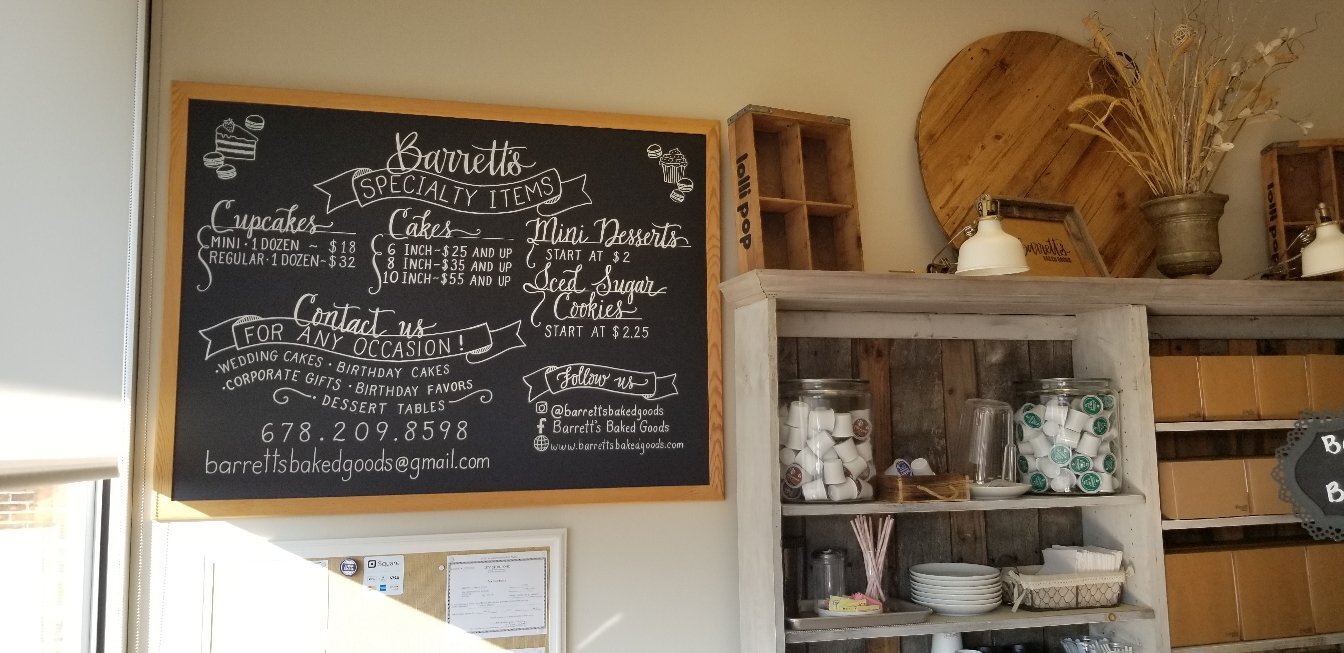 Barrett's
SPECIALTY ITEMS
Cupcakes
MINI · 1 DOZEN ~ $18
REGULAR · 1 DOZEN ~ $32
Cakes
6 INCH ~ $25 AND UP
8 INCH ~ $35 AND UP
10 INCH ~ $55 AND UP
Mini Desserts
START AT $2
Iced Sugar
Cookies
START AT $2.25
Contact us
FOR ANY OCCASION!
·WEDDING CAKES · BIRTHDAY CAKES
·CORPORATE GIFTS · BIRTHDAY FAVORS
· DESSERT TABLES
678.209.8598
barrettsbakedgoods@gmail.com
Follow us
@barrettsbakedgoods
Barrett's Baked Goods
www.barrettsbakedgoods.com
lolli pop
Barrett's
BAKED GOODS
Square
VISA